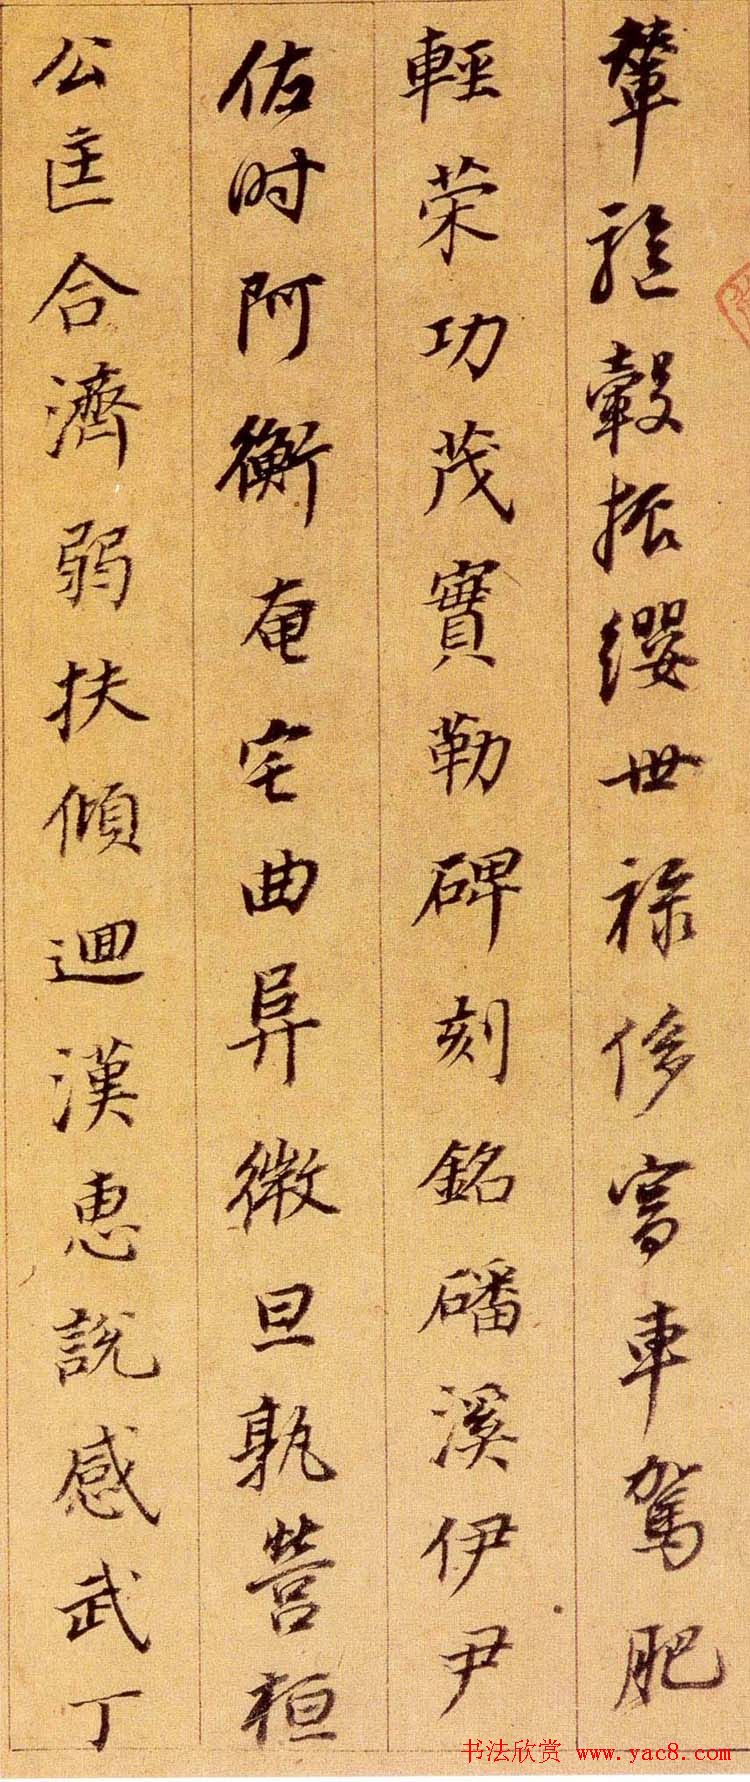 輦驱轂振纓世禄侈富車驾肥
輕荣功茂實勒碑刻銘磻溪伊尹
佐时阿衡奄宅曲阜微旦孰营桓
公匡合濟弱扶傾迴漢惠說感武丁
书法欣赏 www.yac8.com